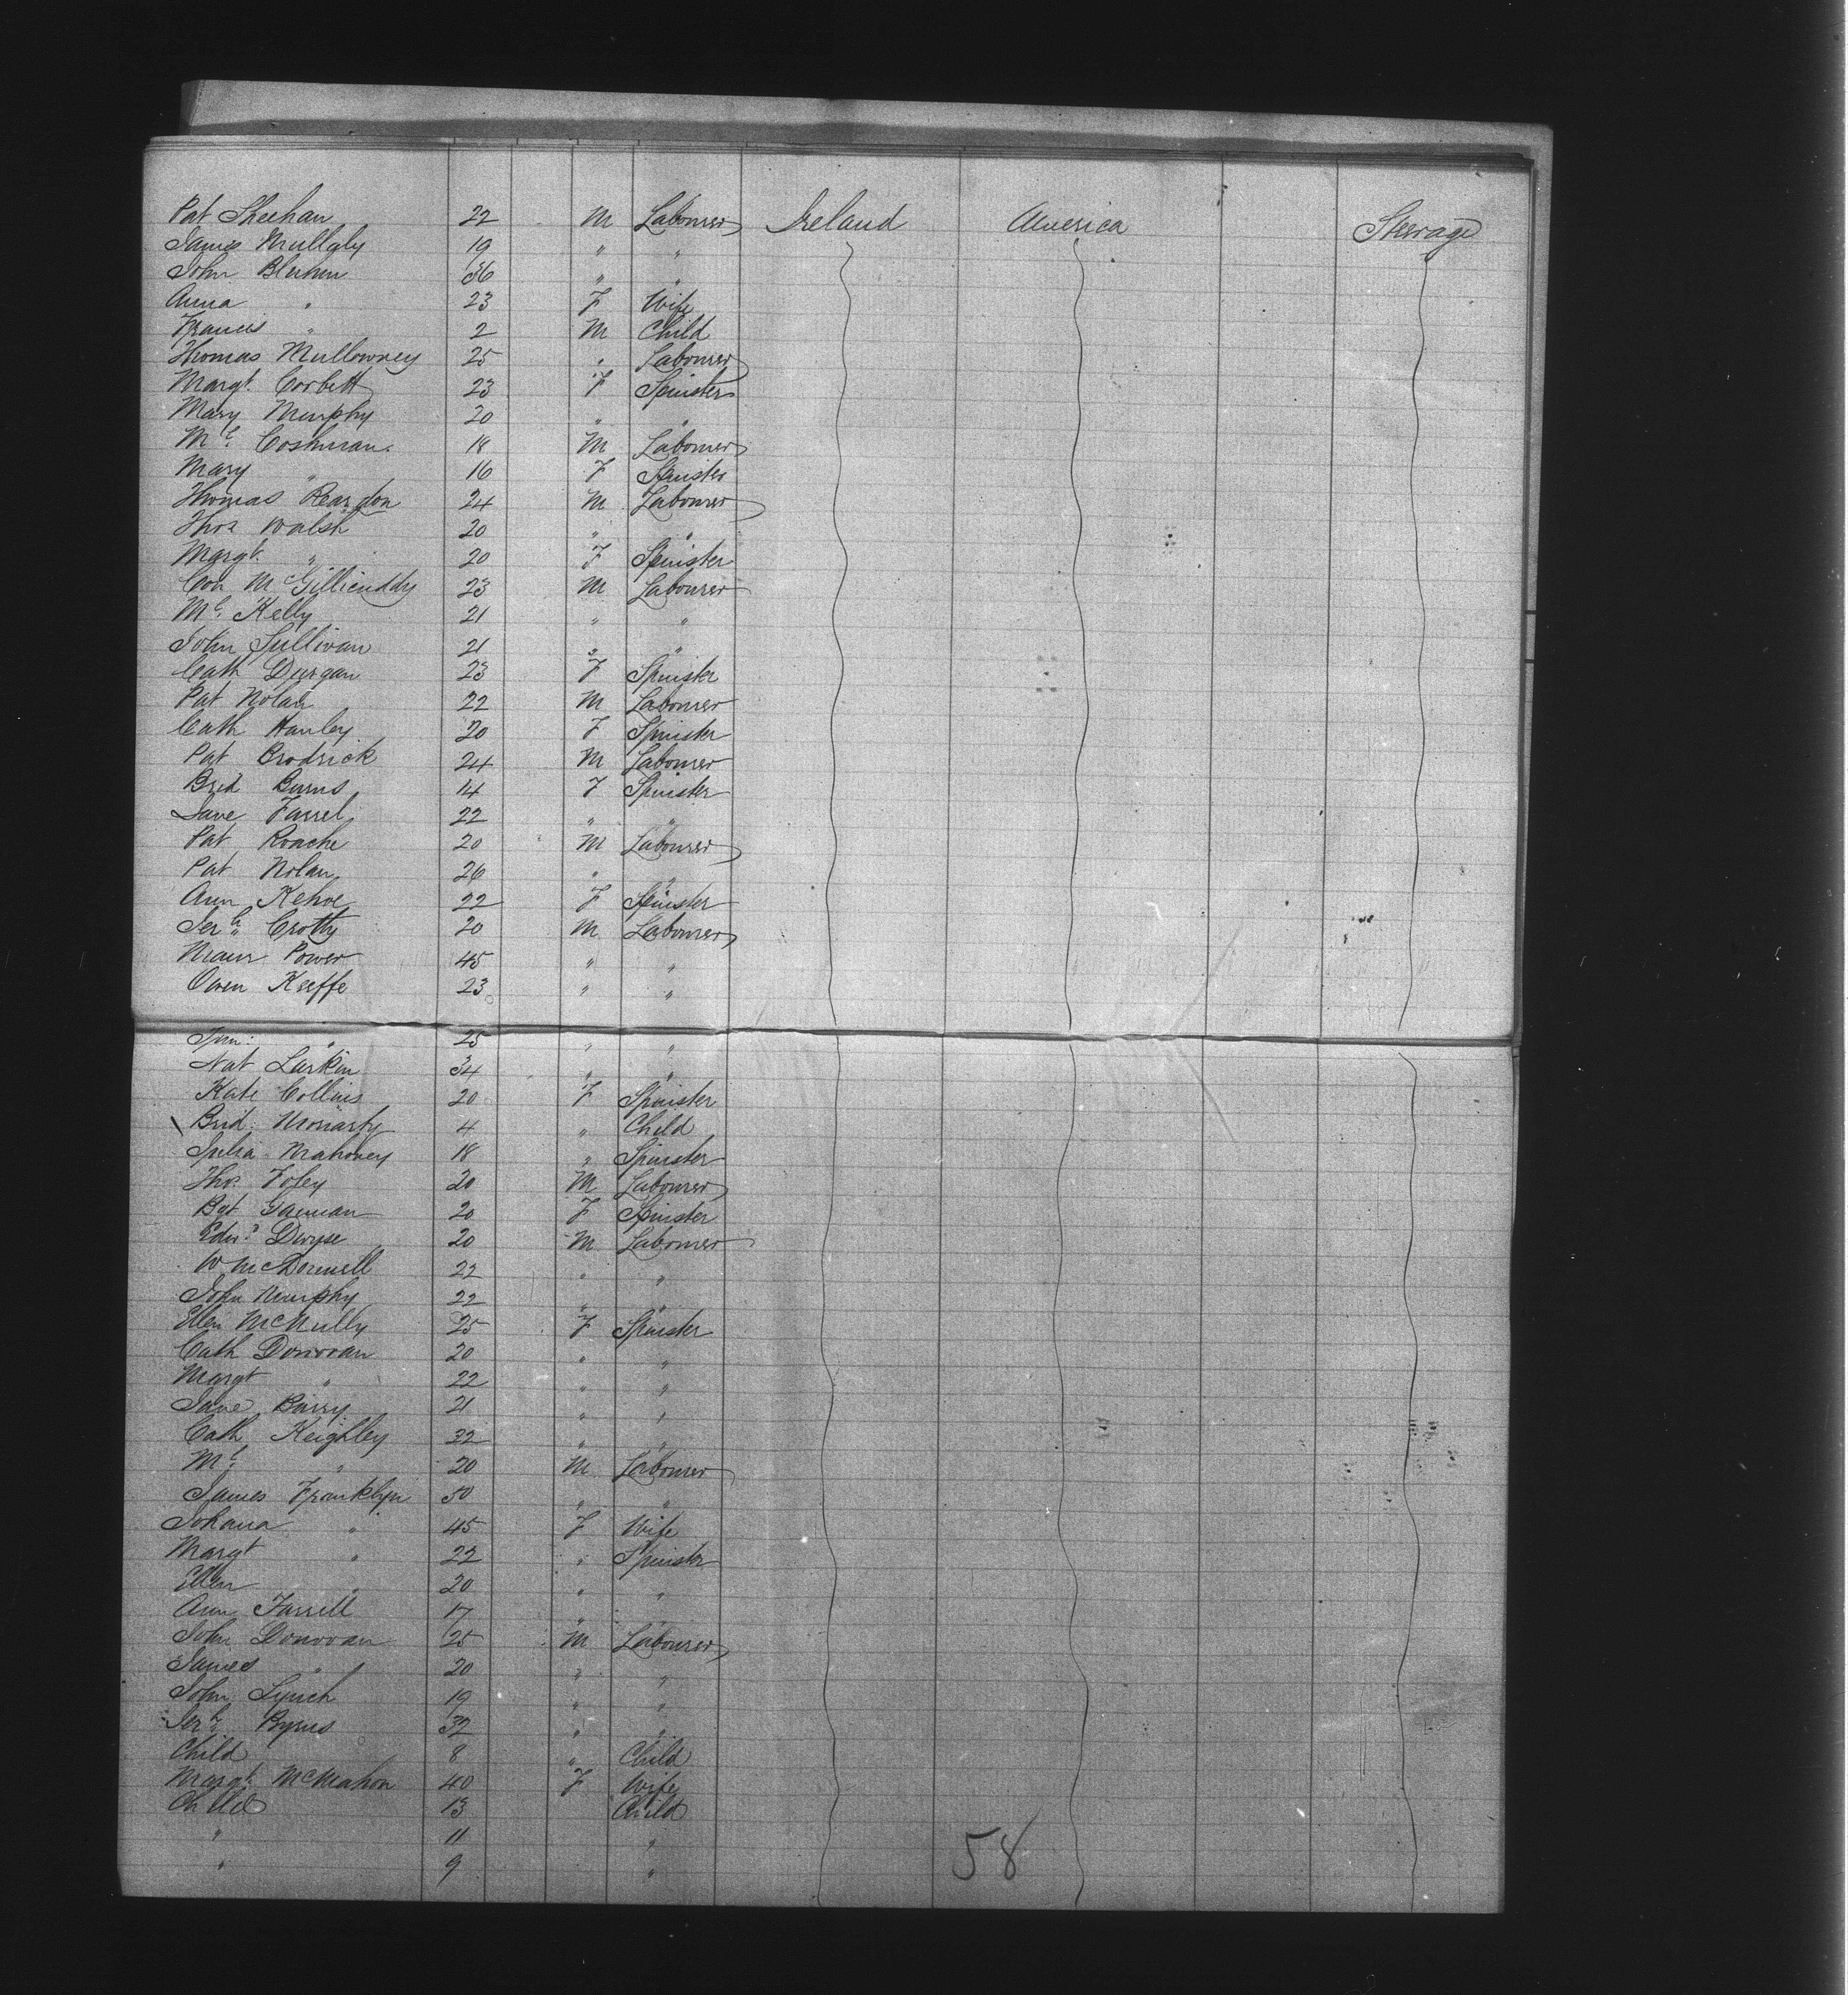 Pat Sheehan 22 M Labourer Ireland America Steerage
James Mullaly 19 " "
John Bluhm 36 " "
Anna " 23 F Wife
Francis " 2 M Child
Thomas Mullowney 25 " Labourer
Margt. Corbett 23 F Spinster
Mary Murphy 20 " "
Ml. Coshman 18 M Labourer
Mary " 16 F Spinster
Thomas Reardon 24 M Labourer
Thos Walsh 20 " "
Margt. " 20 F Spinster
Con McGillicuddy 23 M Labourer
Ml. Kelly 21 " "
John Sullivan 21 " "
Cath Durgan 23 F Spinster
Pat Nolan 22 M Labourer
Cath Hanley 20 F Spinster
Pat Brodrick 24 M Labourer
Brid Burns 14 F Spinster
Jane Farrel 22 " "
Pat Roache 20 M Labourer
Pat Nolan 26 " "
Ann Kehoe 22 F Spinster
Jerh. Crotty 20 M Labourer
Power 45 " "
Owen Keeffe 23 " "
" 25 " "
Nat Larkin 34 " "
Kate Collins 20 F Spinster
Brid. Moriarty 4 " Child
Julia Mahoney 18 " Spinster
Thos. Foley 20 M Labourer
Bgt Gannan 20 F Spinster
Edwd. Dwyse 20 M Labourer
W McDonnell 22 " "
John Murphy 22 " "
Ellen McNully 25 F Spinster
Cath Donovan 20 " "
Margt " 22 " "
Jane Barry 21 " "
Cath Keighley 22 " "
Ml. " 20 M Labourer
James Franklyn 50 " "
Johana " 45 F Wife
Margt " 22 " Spinster
Ellen " 20 " "
Ann Farrell 17 " "
John Donovan 25 M Labourer
James " 20 " "
John Lynch 19 " "
Jerh. Byrns 32 " "
Child 8 " Child
Margt. McMahon 40 F Wife
Child 13 Child
" 11 "
" 9 "
58